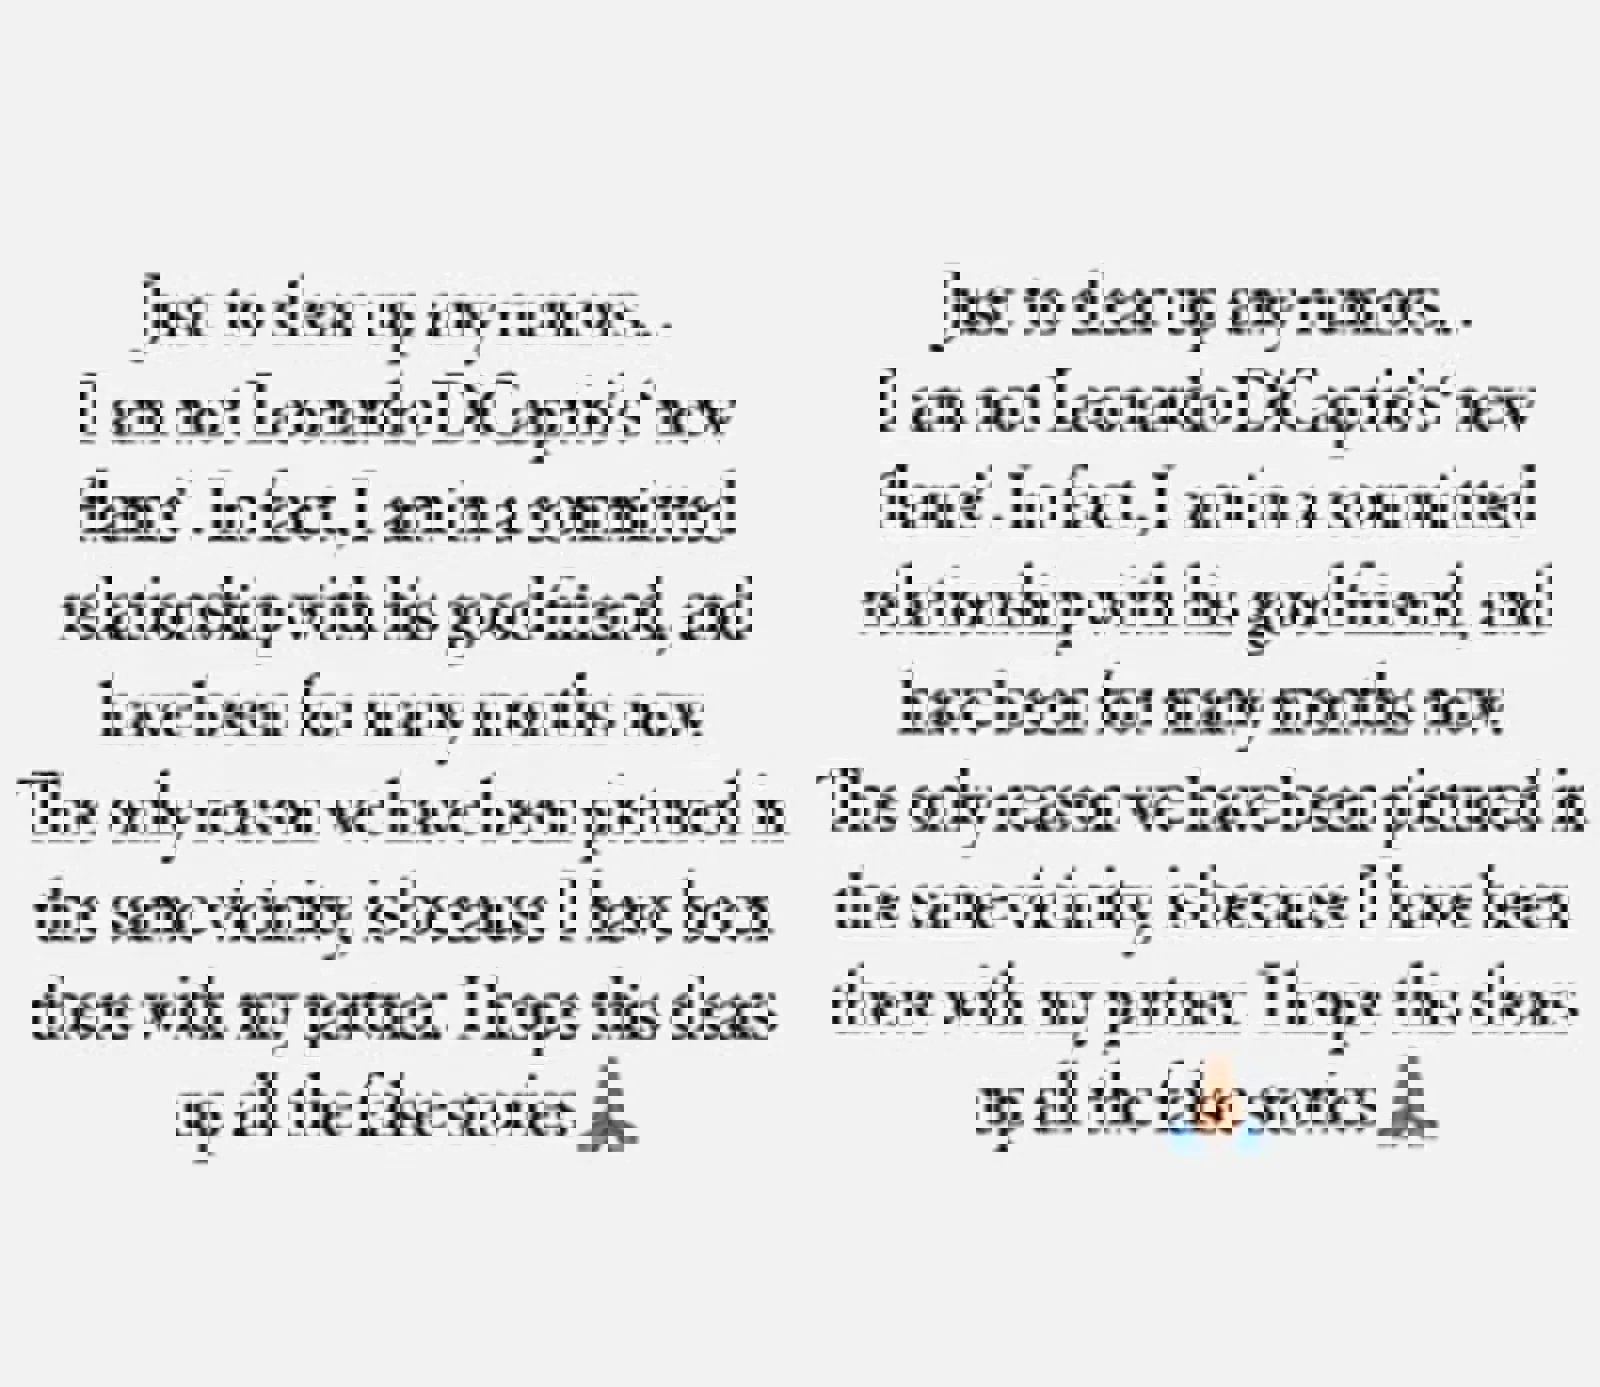 Just to clear up any rumors...
I am not Leonardo DiCaprio's 'new
flame'. In fact, I am in a committed
relationship with his good friend, and
have been for many months now.
The only reason we have been pictured in
the same vicinity, is because I have been
there with my partner. I hope this clears
up all the false stories
Just to clear up any rumors...
I am not Leonardo DiCaprio's 'new
flame'. In fact, I am in a committed
relationship with his good friend, and
have been for many months now.
The only reason we have been pictured in
the same vicinity, is because I have been
there with my partner. I hope this clears
up all the false stories